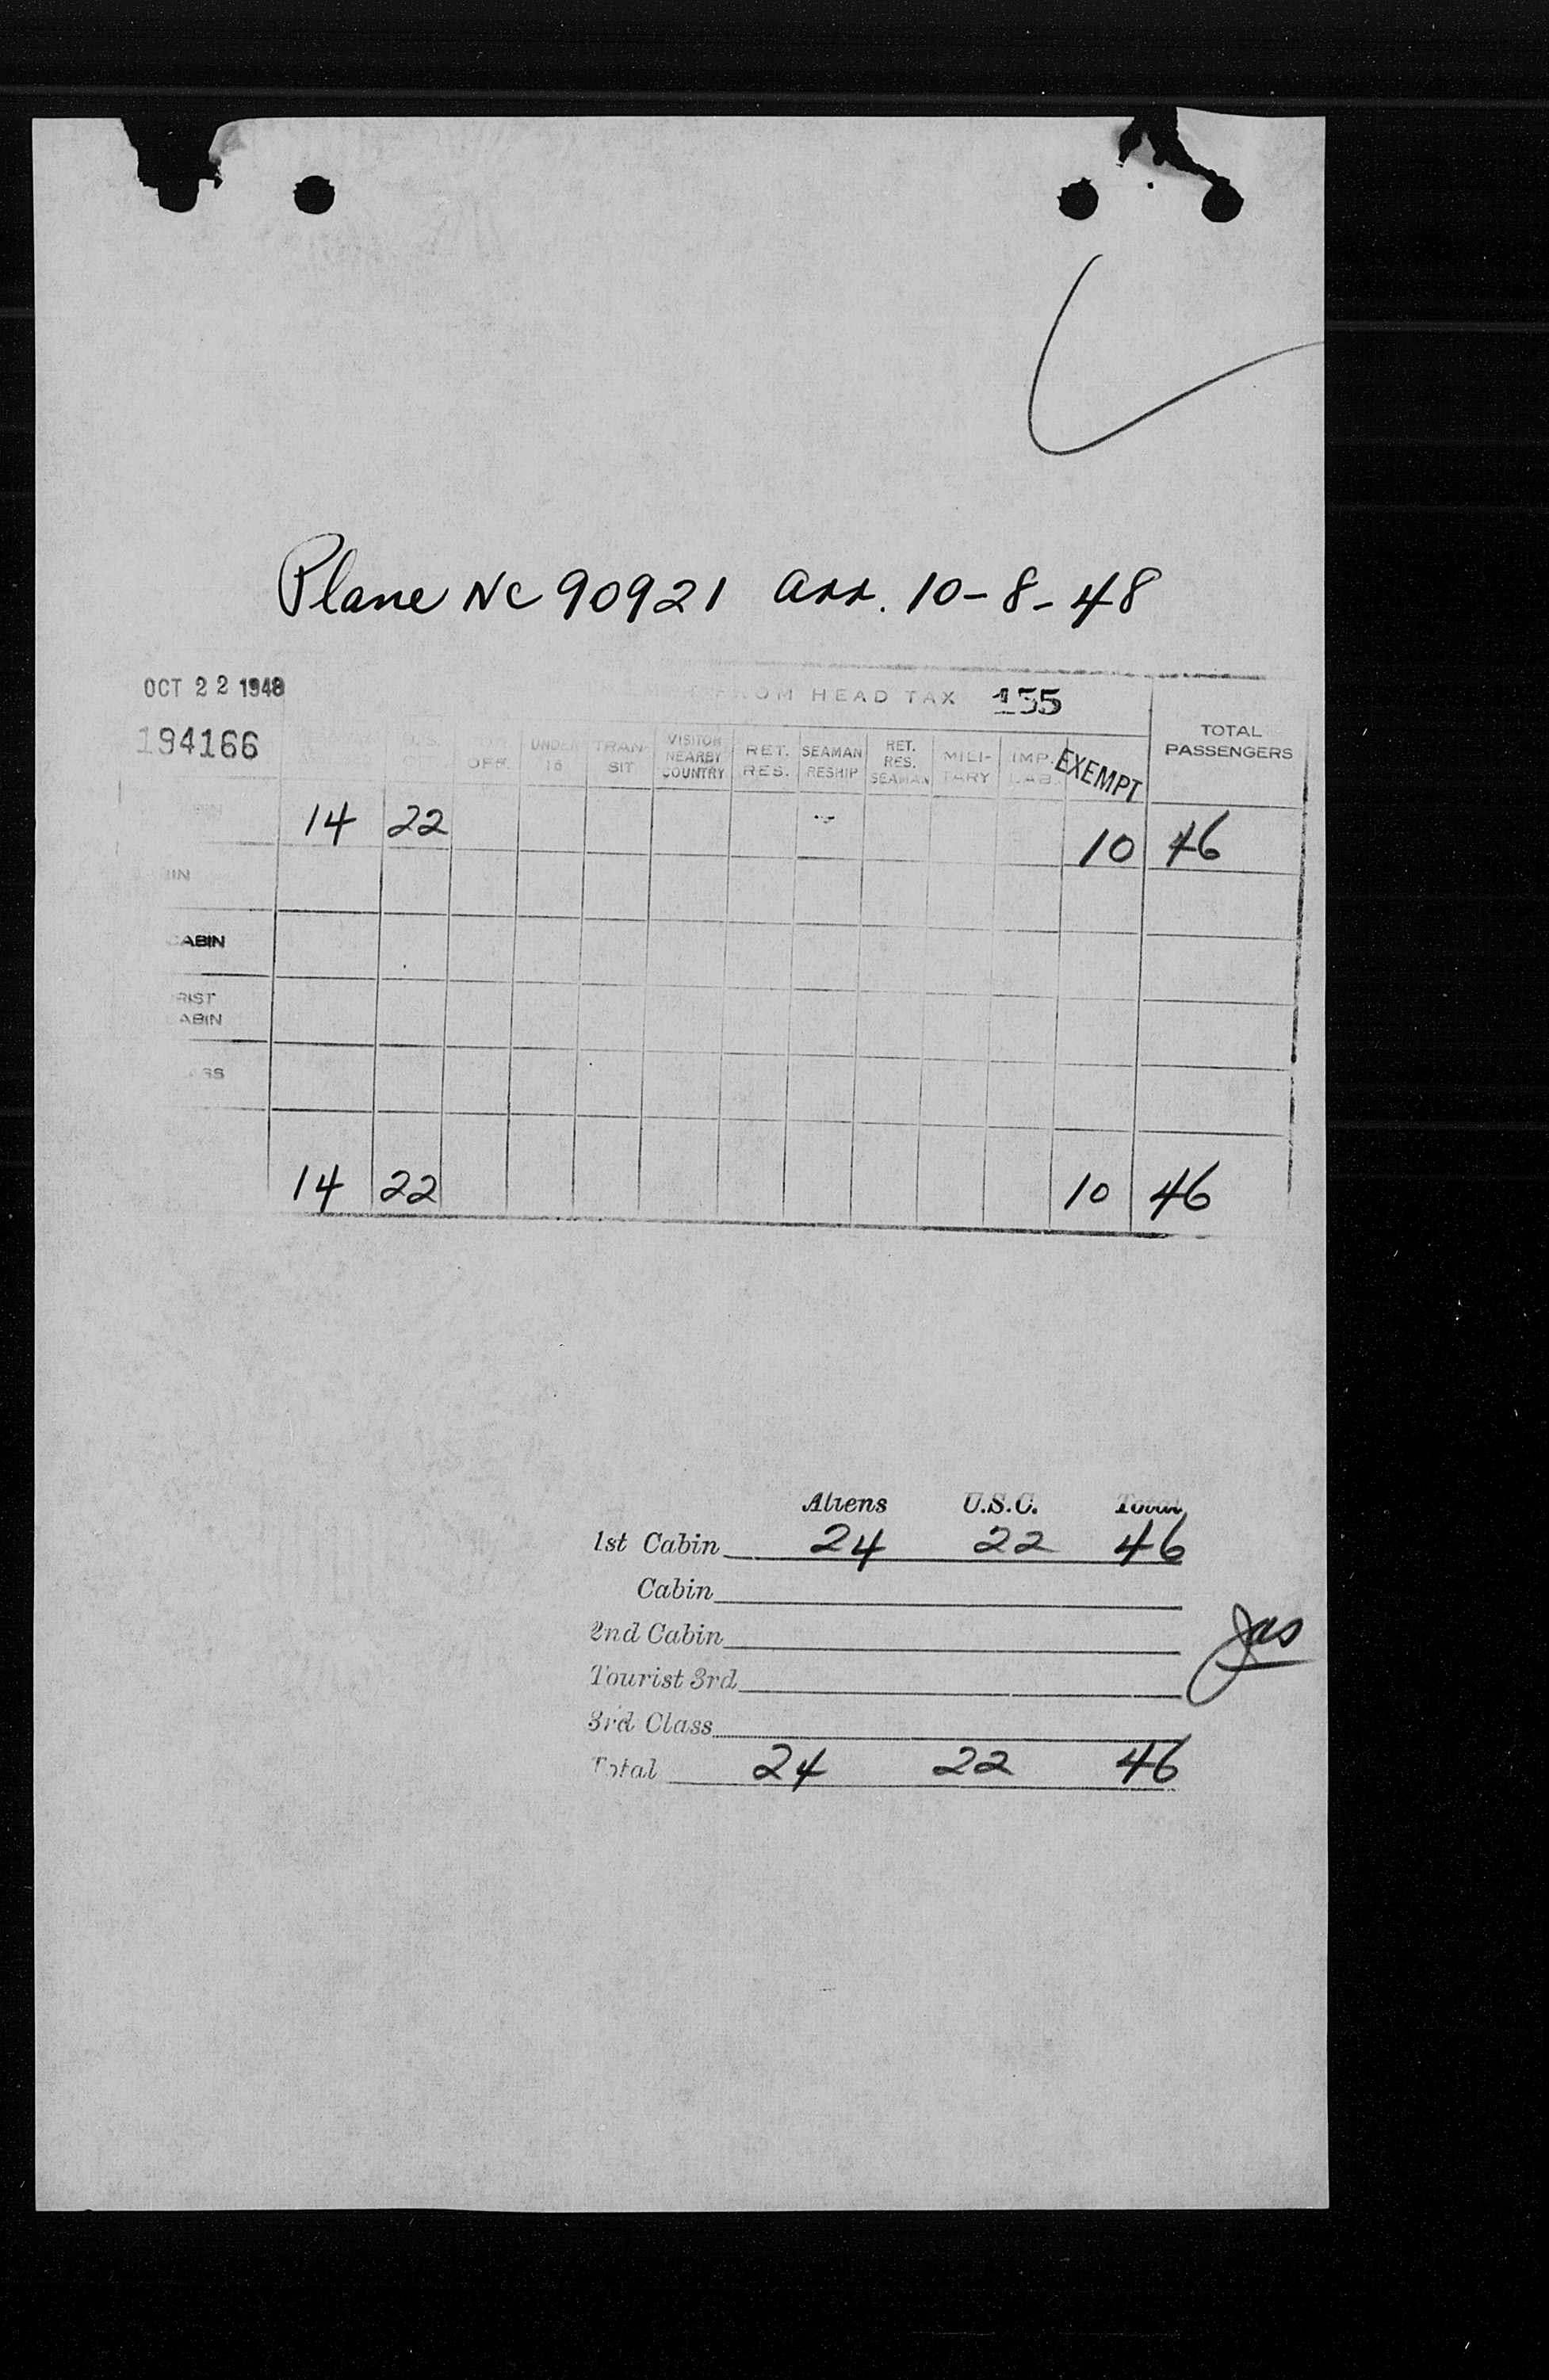 Plane NC 90921 arr. 10-8-48
OCT 22 1948
194166
FROM HEAD TAX 155
TOTAL PASSENGERS
U.S.
OFF.
UNDER 16
TRAN-SIT
VISITOR NEARBY COUNTRY
RET. RES.
SEAMAN RESHIP
RET. RES. SEAMAN
MILI-TARY
IMP. LAB.
EXEMPT
14 22 10 46
IN
CABIN
RIST
ABIN
SS
14 22 10 46
Aliens U.S.C. Total
1st Cabin 24 22 46
Cabin
2nd Cabin
Tourist 3rd
3rd Class
Total 24 22 46
Jas